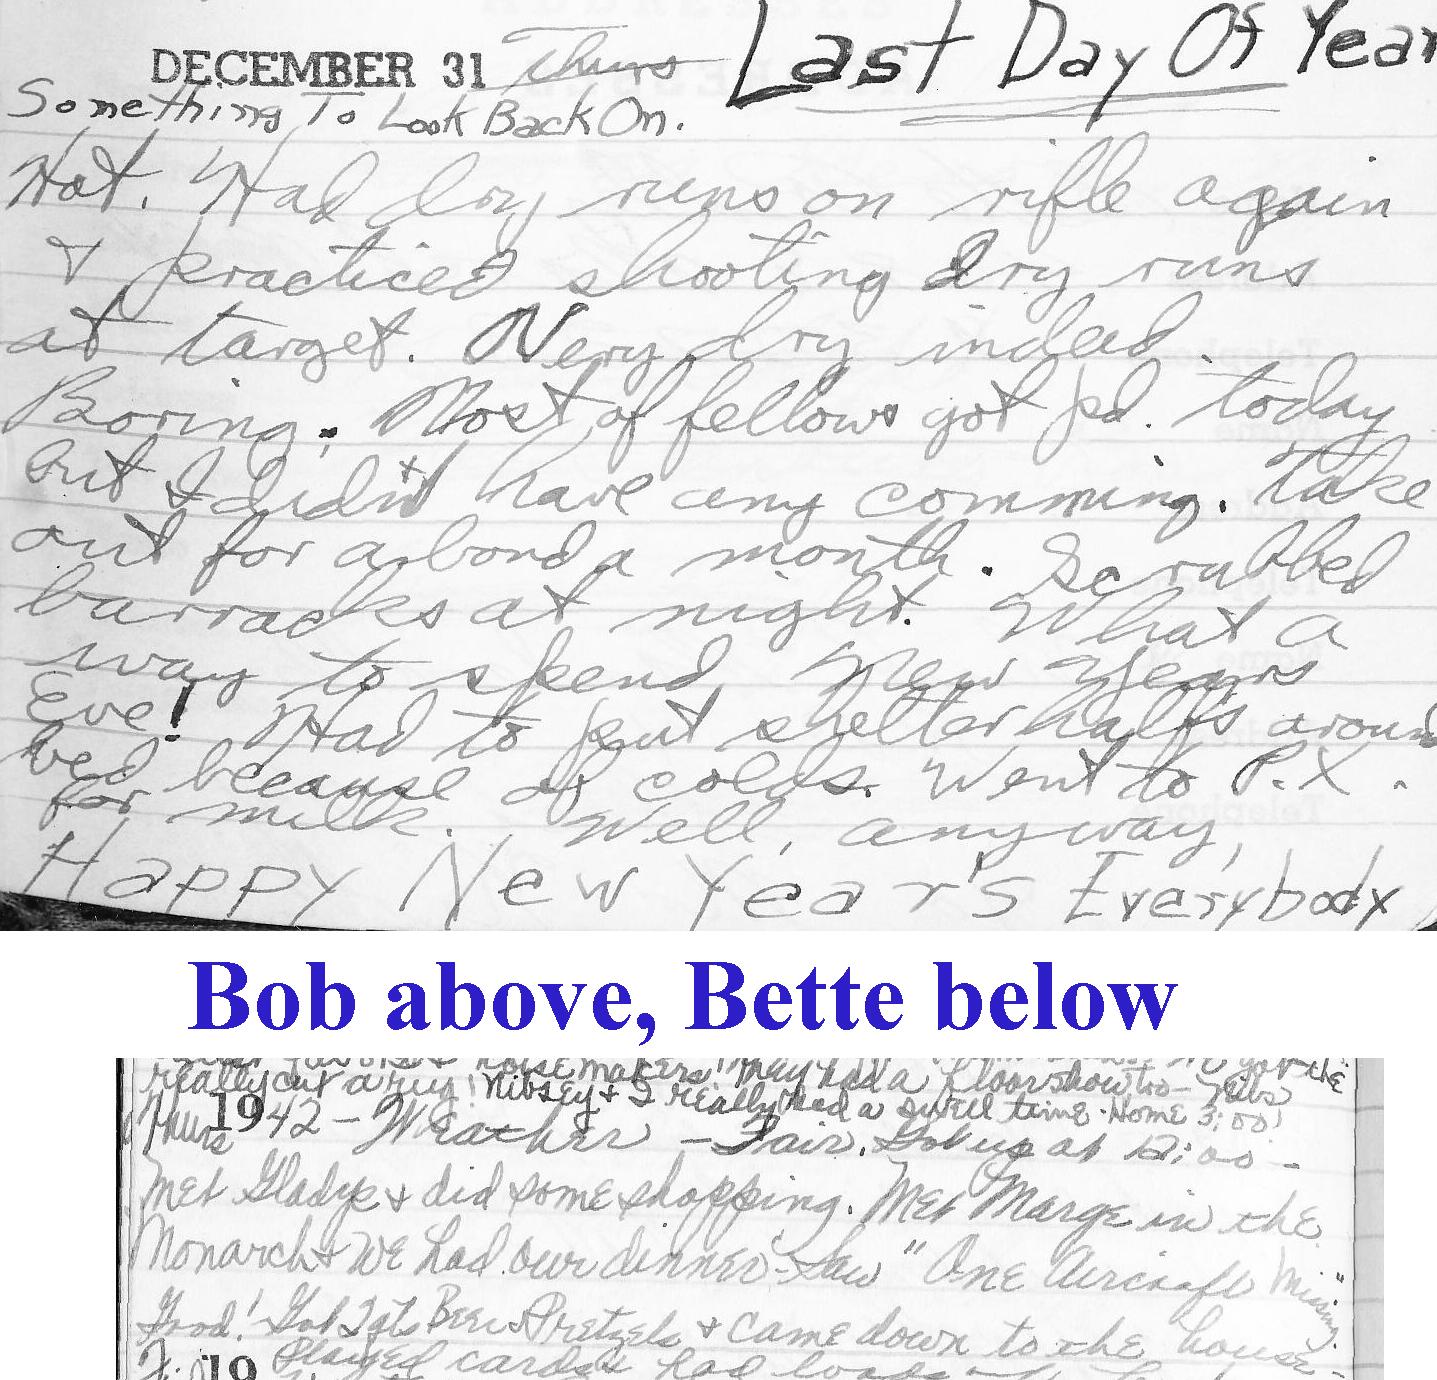 DECEMBER 31 Thurs Last Day Of Year
Something To Look Back On.
Hot. Had dry runs on rifle again
& practiced shooting dry runs
at target. Very dry indeed.
Boring. Most of fellows got pd. today
but I didn't have any comming. Take
out for a bond a month. Scrubbed
barracks at night. What a
way to spend New Years
Eve! Had to put shelter halfs around
bed because of colds. Went to P.X.
for milk. Well, anyway,
Happy New Year's Everybody
Bob above, Bette below
noisemakers! They had a
really cut a rug! Nibsey & I really had a swell time. Home 3:00!
Thurs 1942 - Weather - Fair. Got up at 12:00 -
Met Gladys & did some shopping. Met Marge in the
Monarch & we had our dinner - Saw "One Aircraft Missing"
Good! Got 2 qts Beer & Pretzels & came down to the house -
19 Played cards & had loads